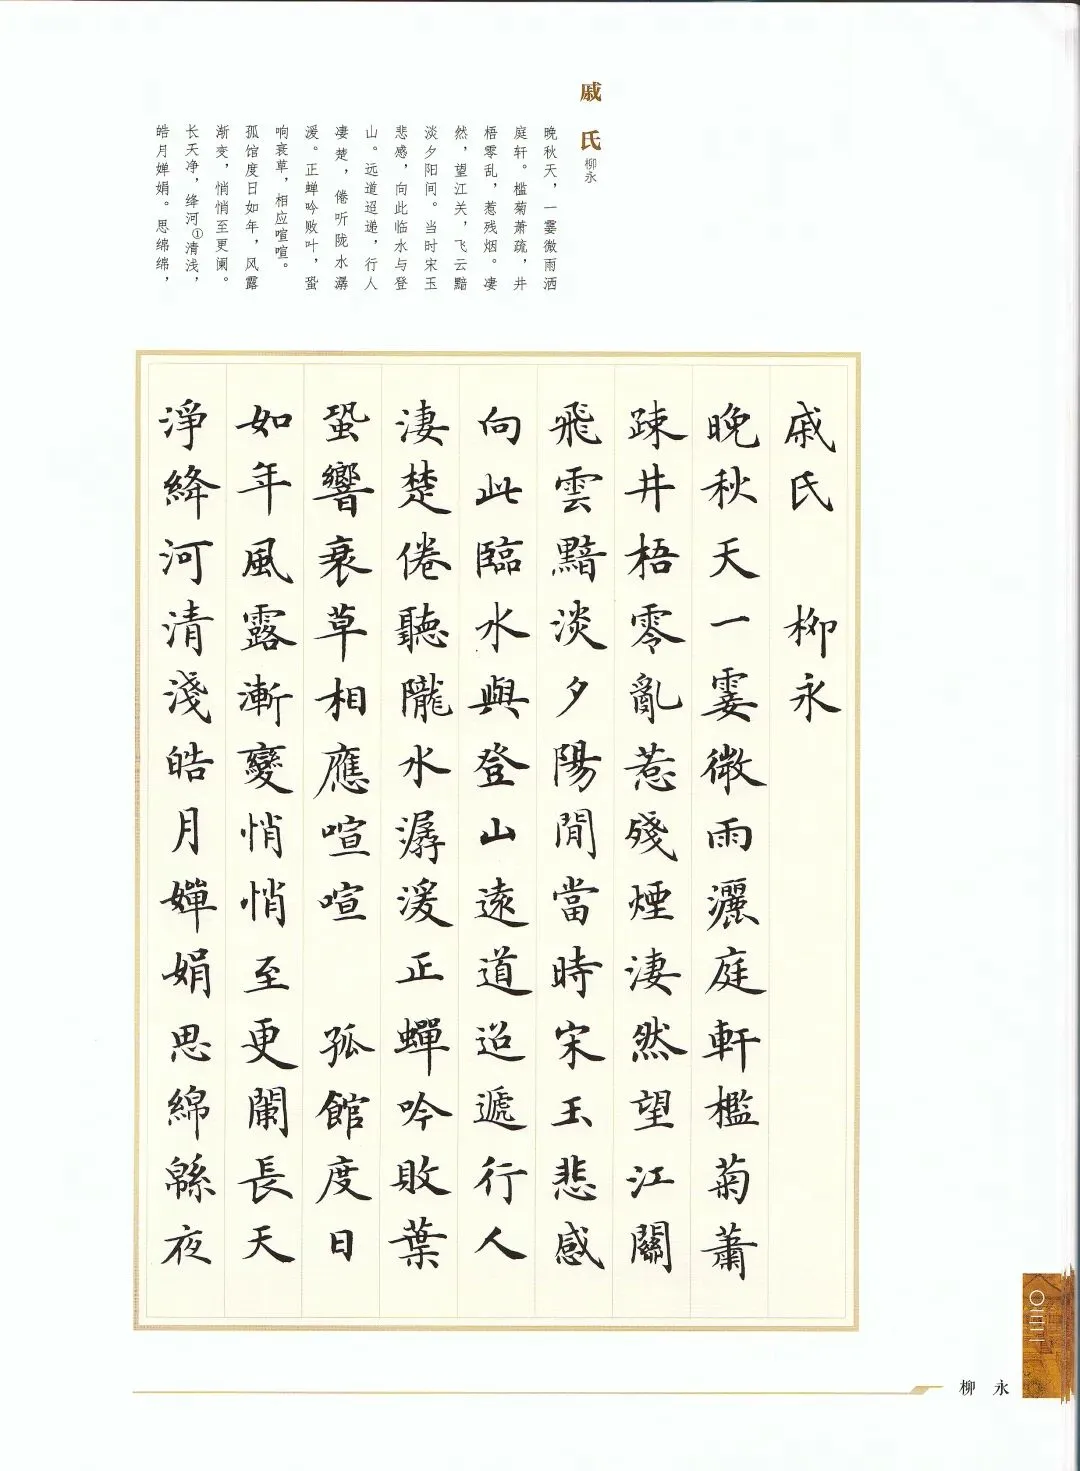 戚氏
柳永
晚秋天，一霎微雨洒
庭轩。槛菊萧疏，井
梧零乱，惹残烟。凄
然，望江关，飞云黯
淡夕阳间。当时宋玉
悲感，向此临水与登
山。远道迢递，行人
凄楚，倦听陇水潺
湲。正蝉吟败叶，蛩
响衰草，相应喧喧。
孤馆度日如年，风露
渐变，悄悄至更阑。
长天净，绛河①清浅，
皓月婵娟。思绵绵，
戚氏 柳永
晚秋天一霎微雨灑庭軒檻菊蕭
疎井梧零亂惹殘煙淒然望江關
飛雲黯淡夕陽間當時宋玉悲感
向此臨水與登山遠道迢遞行人
淒楚倦聽隴水潺湲正蟬吟敗葉
蛩響衰草相應喧喧 孤館度日
如年風露漸變悄悄至更闌長天
淨絳河清淺皓月嬋娟思綿緜夜
柳永